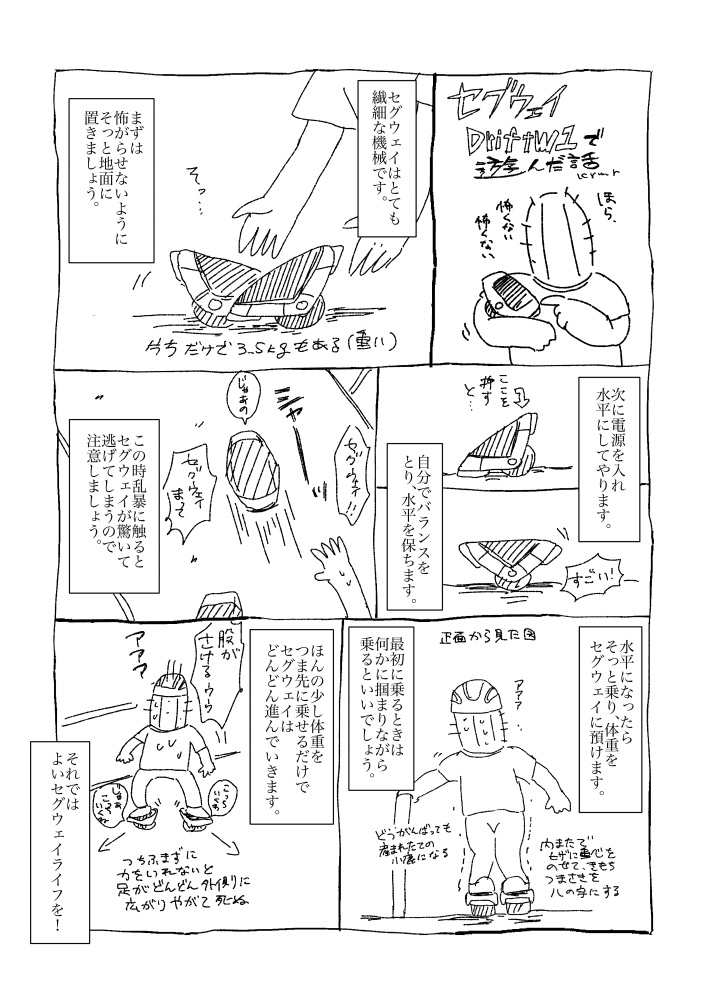 セグウェイ
Drift W1で
遊んだ話
ほら、
怖くない
怖くない、
セグウェイはとても
繊細な機械です。
まずは
怖がらせないように
そっと地面に
置きましょう。
そっ…
片ちだけで3.5kgもある(重い)
次に電源を入れ
水平にしてやります。
ここを
押す
と…
自分でバランスを
とり、水平を保ちます。
すごい!
シャッ
じゃあの
セグウェイ!!
セグウェイ
まって
この時乱暴に触ると
セグウェイが驚いて
逃げてしまうので
注意しましょう。
水平になったら
そっと乗り、体重を
セグウェイに預けます。
正面から見た図
アアア
最初に乗るときは
何かに掴まりながら
乗るといいでしょう。
どうがんばっても
産まれたての
小鹿になる
内またで
ヒザに重心を
のせて、きもち
つまさきを
ハの字にする
ほんの少し体重を
つま先に乗せるだけで
セグウェイは
どんどん進んでいきます。
股が
さける
アアアア
つちふまずに
力をいれないと
足がどんどん外側に
広がりやがて死ぬ
それでは
よいセグウェイライフを!